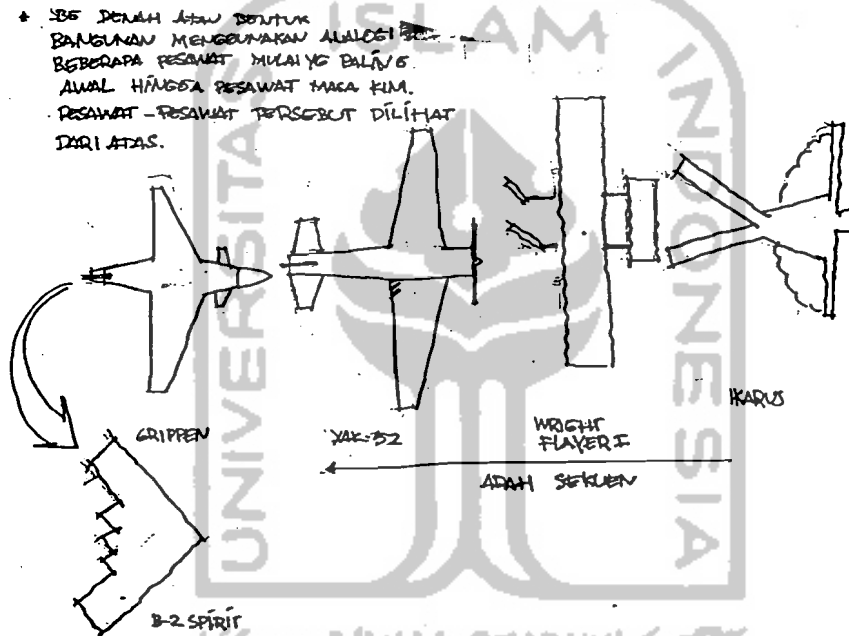 * IDE DENAH ATAU BENTUK
BANGUNAN MENGGUNAKAN ANALOGI
BEBERAPA PESAWAT MULAI YG PALING
AWAL HINGGA PESAWAT MASA KINI.
PESAWAT-PESAWAT TERSEBUT DILIHAT
DARI ATAS.
GRIPPEN
YAK-52
WRIGHT
FLAYER I
IKARUS
ARAH SEKUEN
B-2 SPIRIT
UNIVERSITAS
ISLAM
INDONESIA